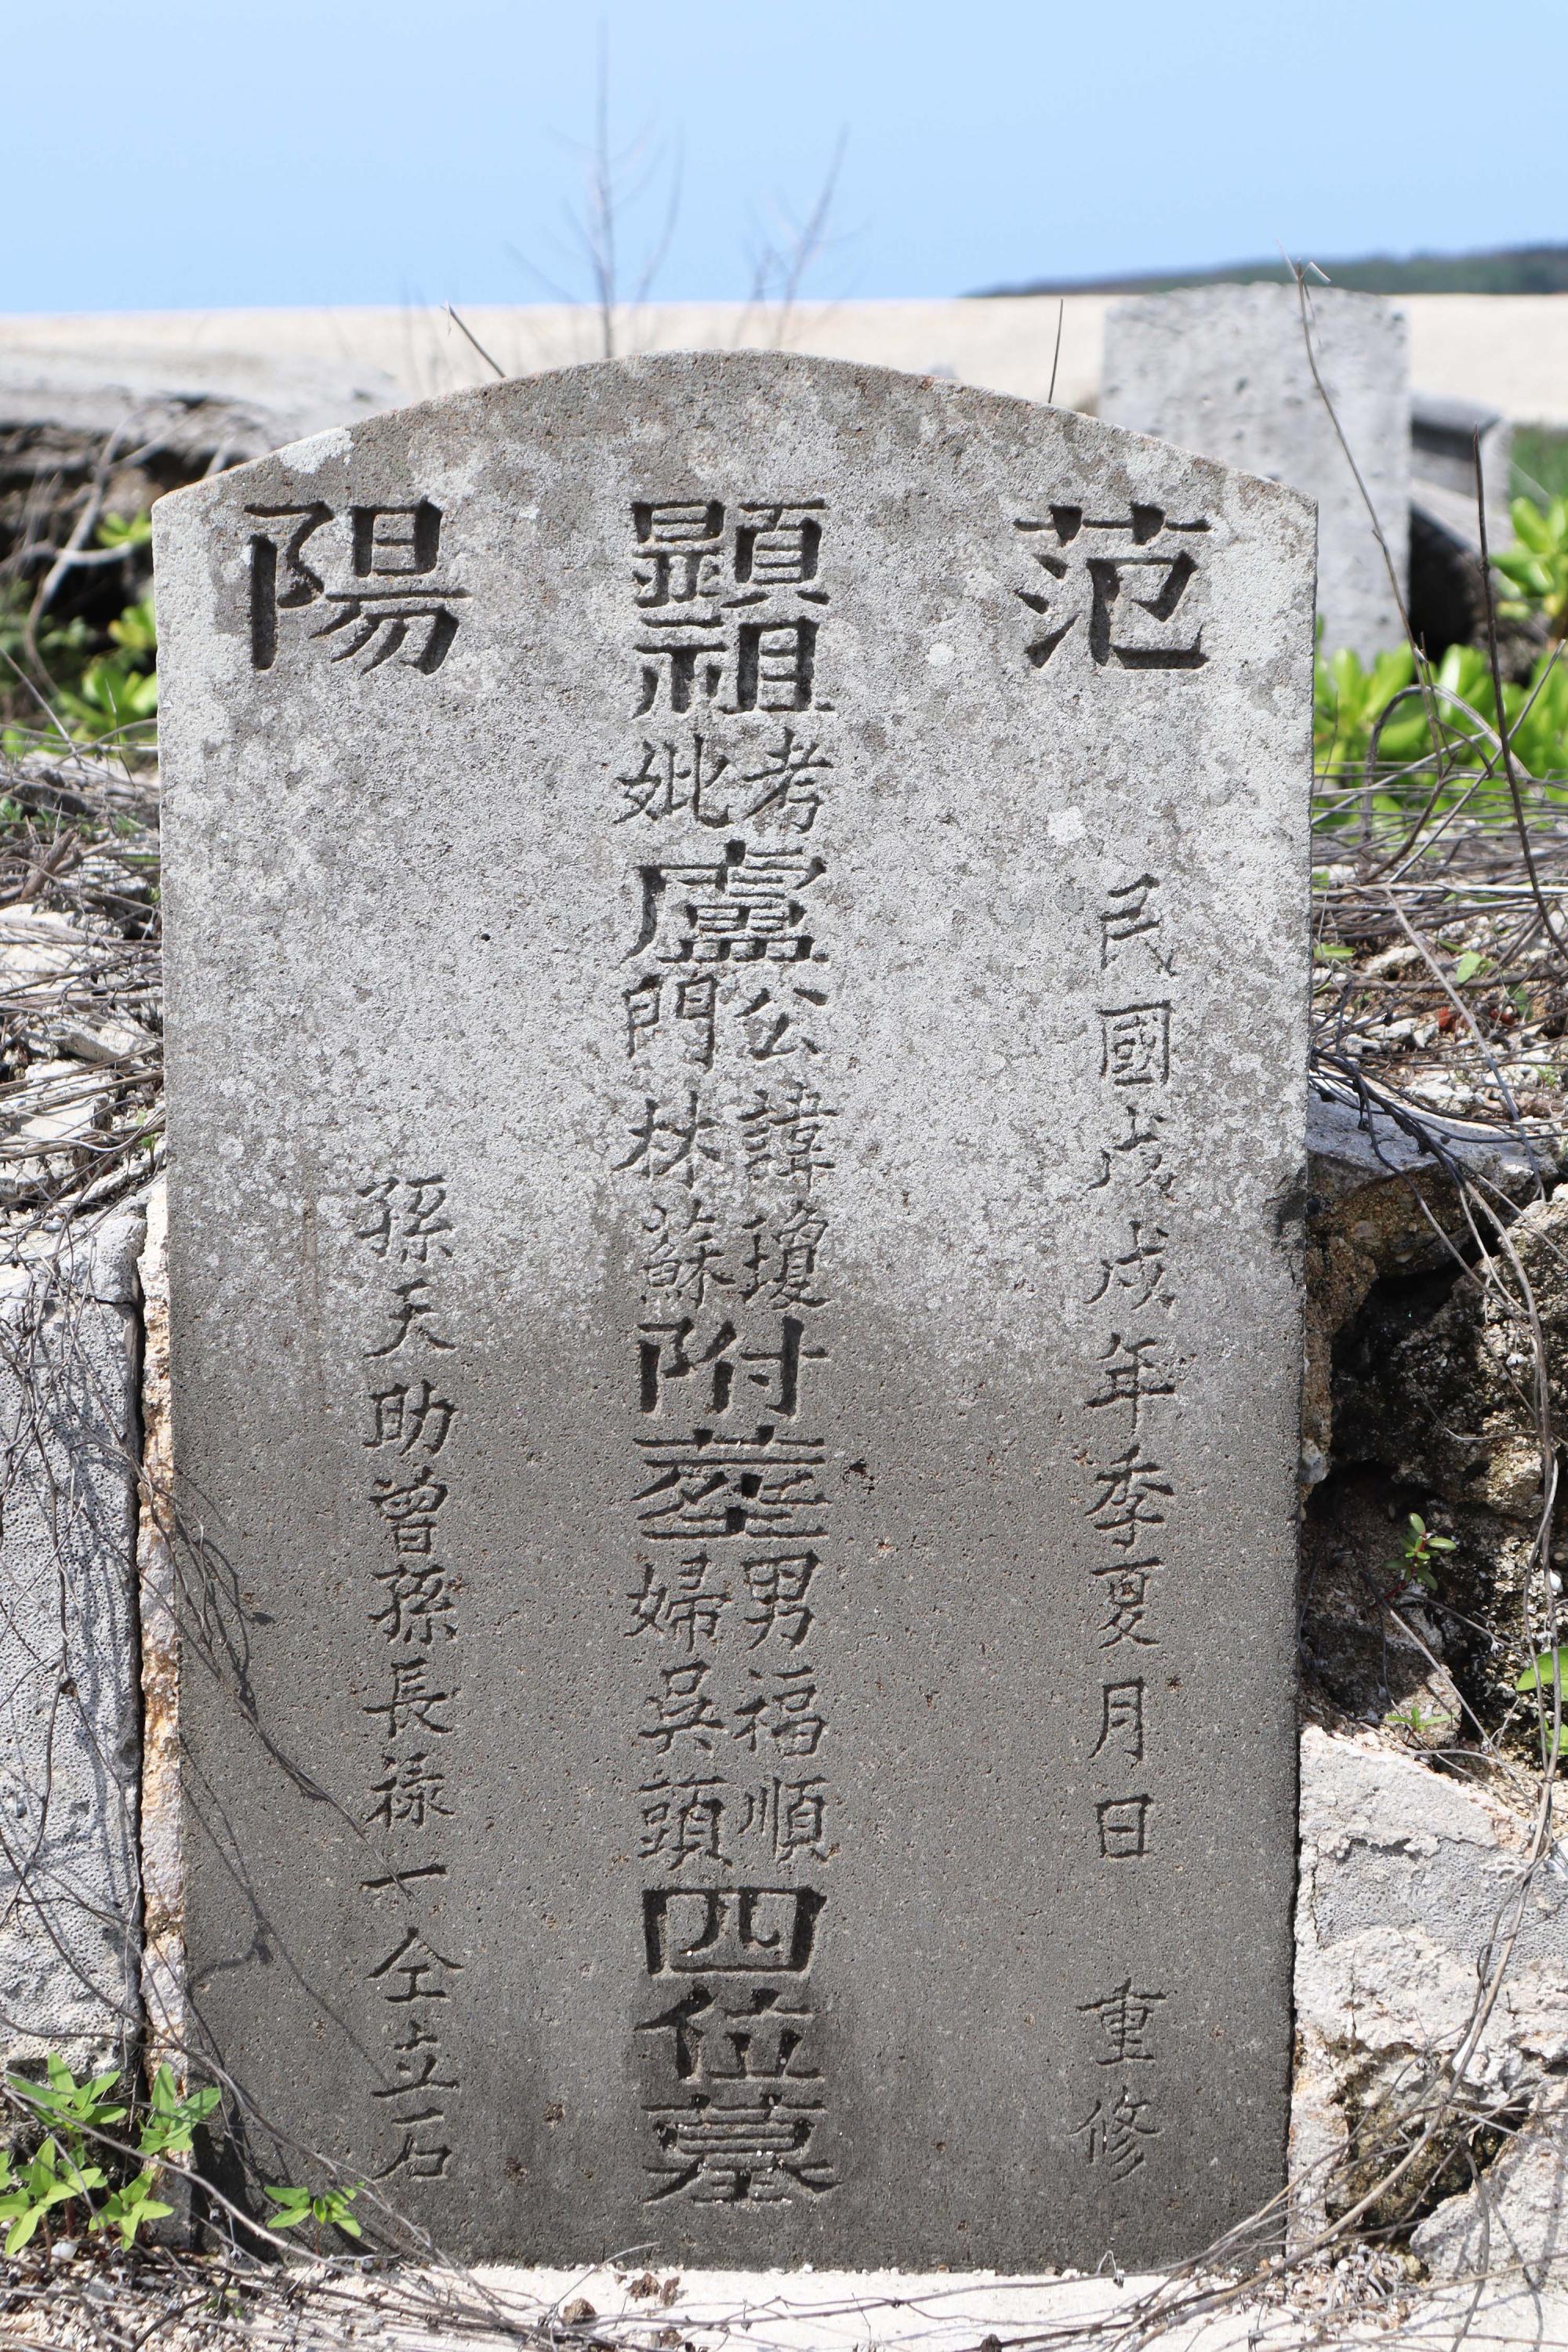 范陽
民國戊戌年季夏月日重修
顯祖考妣盧公門諱林瓊蘇附塟男婦福吳順頭四位墓
孫天助曾孫長祿一仝立石